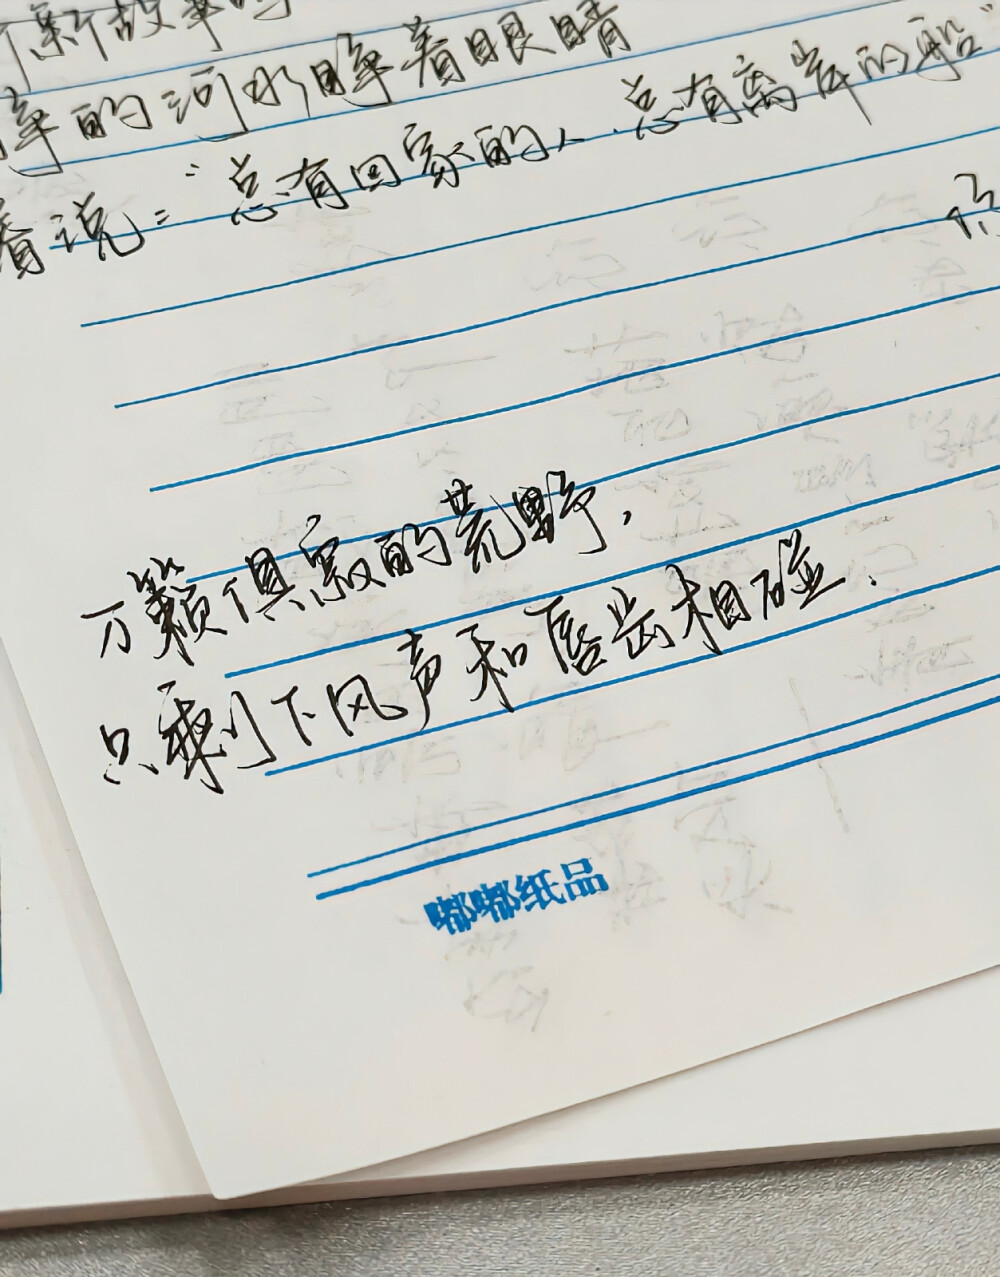 新故事的
静的河水睁着眼睛
着说："总有回家的人.总有离岸的船"
万籁俱寂的荒野，
只剩下风声和唇齿相碰.
嘟嘟纸品